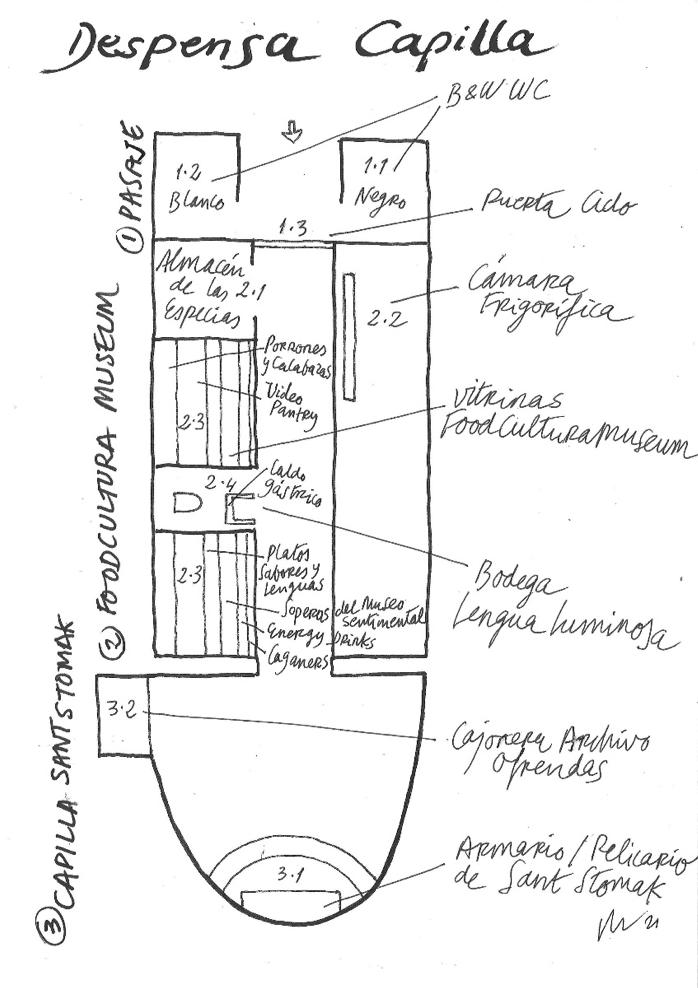 Despensa Capilla
B&W WC
① PASAJE
1.2
Blanco
1.1
Negro
1.3
Puerta Cielo
② FOODCULTURA MUSEUM
Almacén
de las 2.1
Especias
2.2
Cámara
Frigorífica
Porrones
y Calabazas
Video
Pantry
2.3
Vitrinas
FoodCulturaMuseum
2.4
Caldo
gástrico
Bodega
Lengua Luminosa
2.3
Platos
Sabores y
Lenguas
Soperos del Museo
Sentimental
Energy Drinks
Caganers
③ CAPILLA SANT STOMAK
3.2
Cajonera Archivo
Ofrendas
3.1
Armario/Relicario
de Sant Stomak
21